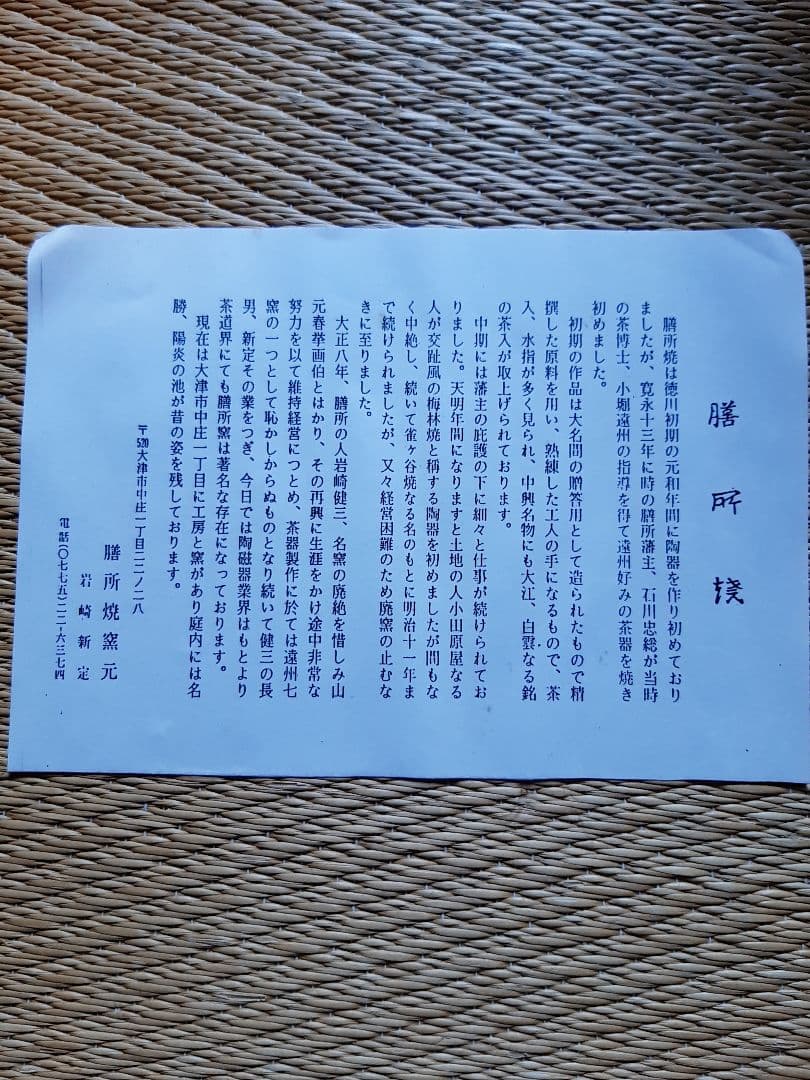 膳所焼
膳所焼は徳川初期の元和年間に陶器を作り初めており
ましたが、寛永十三年に時の膳所藩主、石川忠総が当時
の茶博士、小堀遠州の指導を得て遠州好みの茶器を焼き
初めました。
初期の作品は大名間の贈答用として造られたもので精
撰した原料を用い、熟練した工人の手になるもので、茶
入、水指が多く見られ、中興名物にも大江、白雲なる銘
の茶入が取上げられております。
中期には藩主の庇護の下に細々と仕事が続けられてお
りました。天明年間になりますと土地の人小田原屋なる
人が交趾風の梅林焼と称する陶器を初めましたが間もな
く中絶し、続いて雀ヶ谷焼なる名のもとに明治十一年ま
で続けられましたが、又々経営困難のため廃窯の止むな
きに至りました。
大正八年、膳所の人岩崎健三、名窯の廃絶を惜しみ山
元春挙画伯とはかり、その再興に生涯をかけ途中非常な
努力を以て維持経営につとめ、茶器製作に於ては遠州七
窯の一つとして恥かしからぬものとなり続いて健三の長
男、新定その業をつぎ、今日では陶磁器業界はもとより
茶道界にても膳所窯は著名な存在になっております。
現在は大津市中庄一丁目に工房と窯があり庭内には名
勝、陽炎の池が昔の姿を残しております。
〒520大津市中庄一丁目二二ノ二八
膳所焼窯元
岩崎新定
電話(〇七七五)二二-六三七四